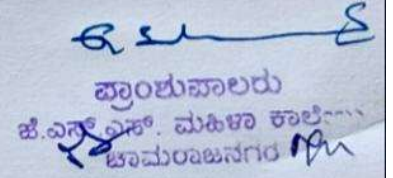 ಪ್ರಾಂಶುಪಾಲರು
ಜೆ.ಎಸ್.ಎಸ್. ಮಹಿಳಾ
ಚಾಮರಾಜನಗರ